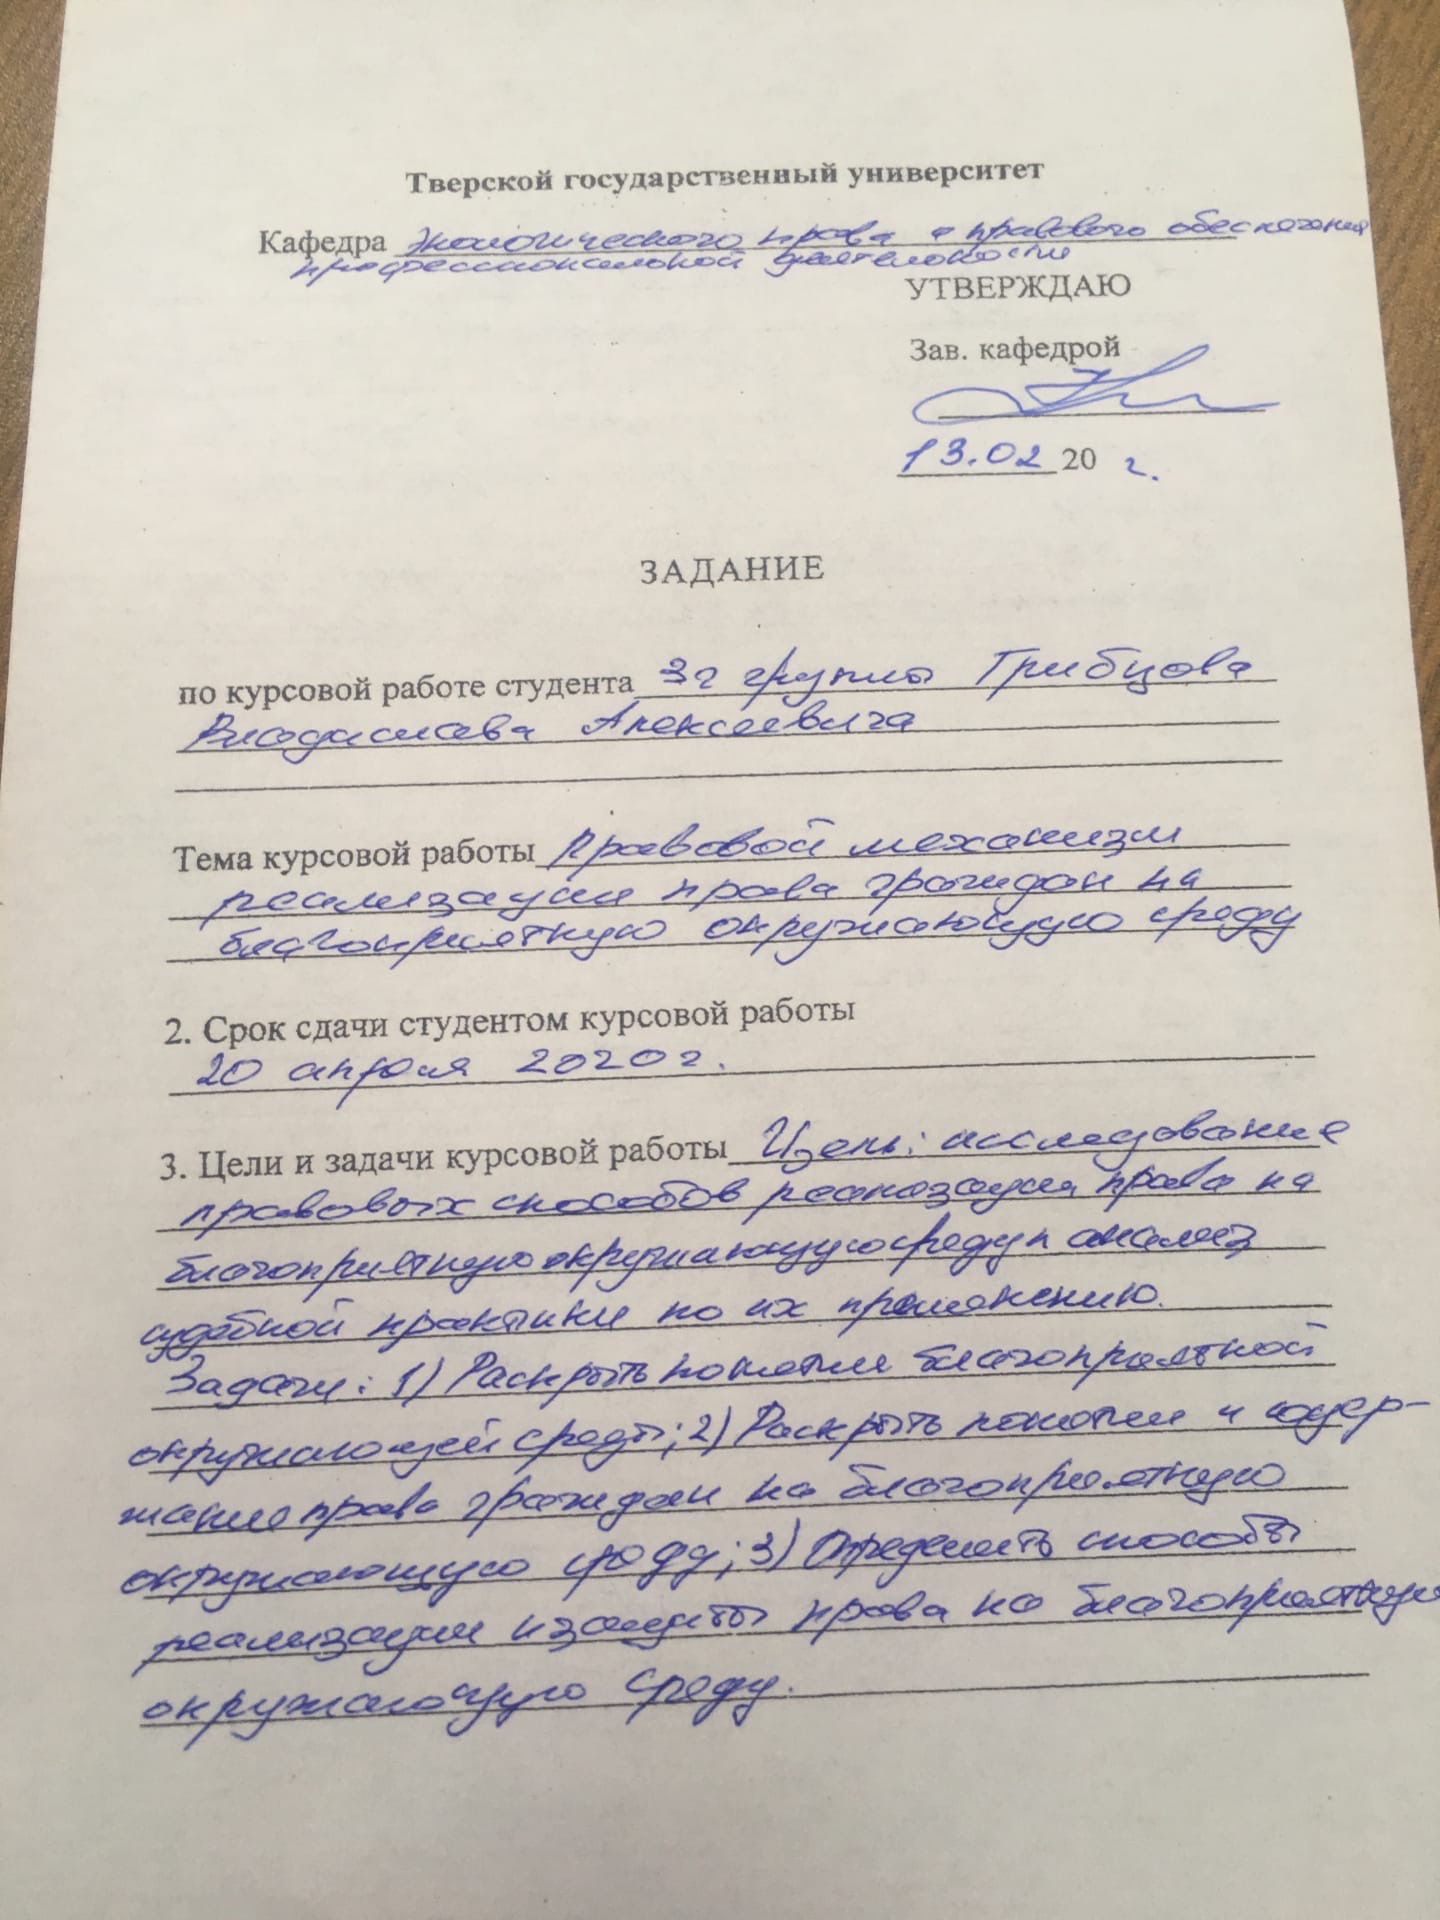 Тверской государственный университет
Кафедра экологического права и правового обеспечения
профессиональной деятельности
УТВЕРЖДАЮ
Зав. кафедрой
13.02 20 г.
ЗАДАНИЕ
по курсовой работе студента 3г группы Грибцова
Владислава Алексеевича
Тема курсовой работы Правовой механизм
реализации права граждан на
благоприятную окружающую среду
2. Срок сдачи студентом курсовой работы
20 апреля 2020 г.
3. Цели и задачи курсовой работы Цель: исследование
правовых способов реализации права на
благоприятную окружающую среду и анализ
судебной практики по их применению.
Задачи: 1) Раскрыть понятие благоприятной
окружающей среды; 2) Раскрыть понятие и содер-
жание права граждан на благоприятную
окружающую среду; 3) Определить способы
реализации и защиты права на благоприятную
окружающую среду.